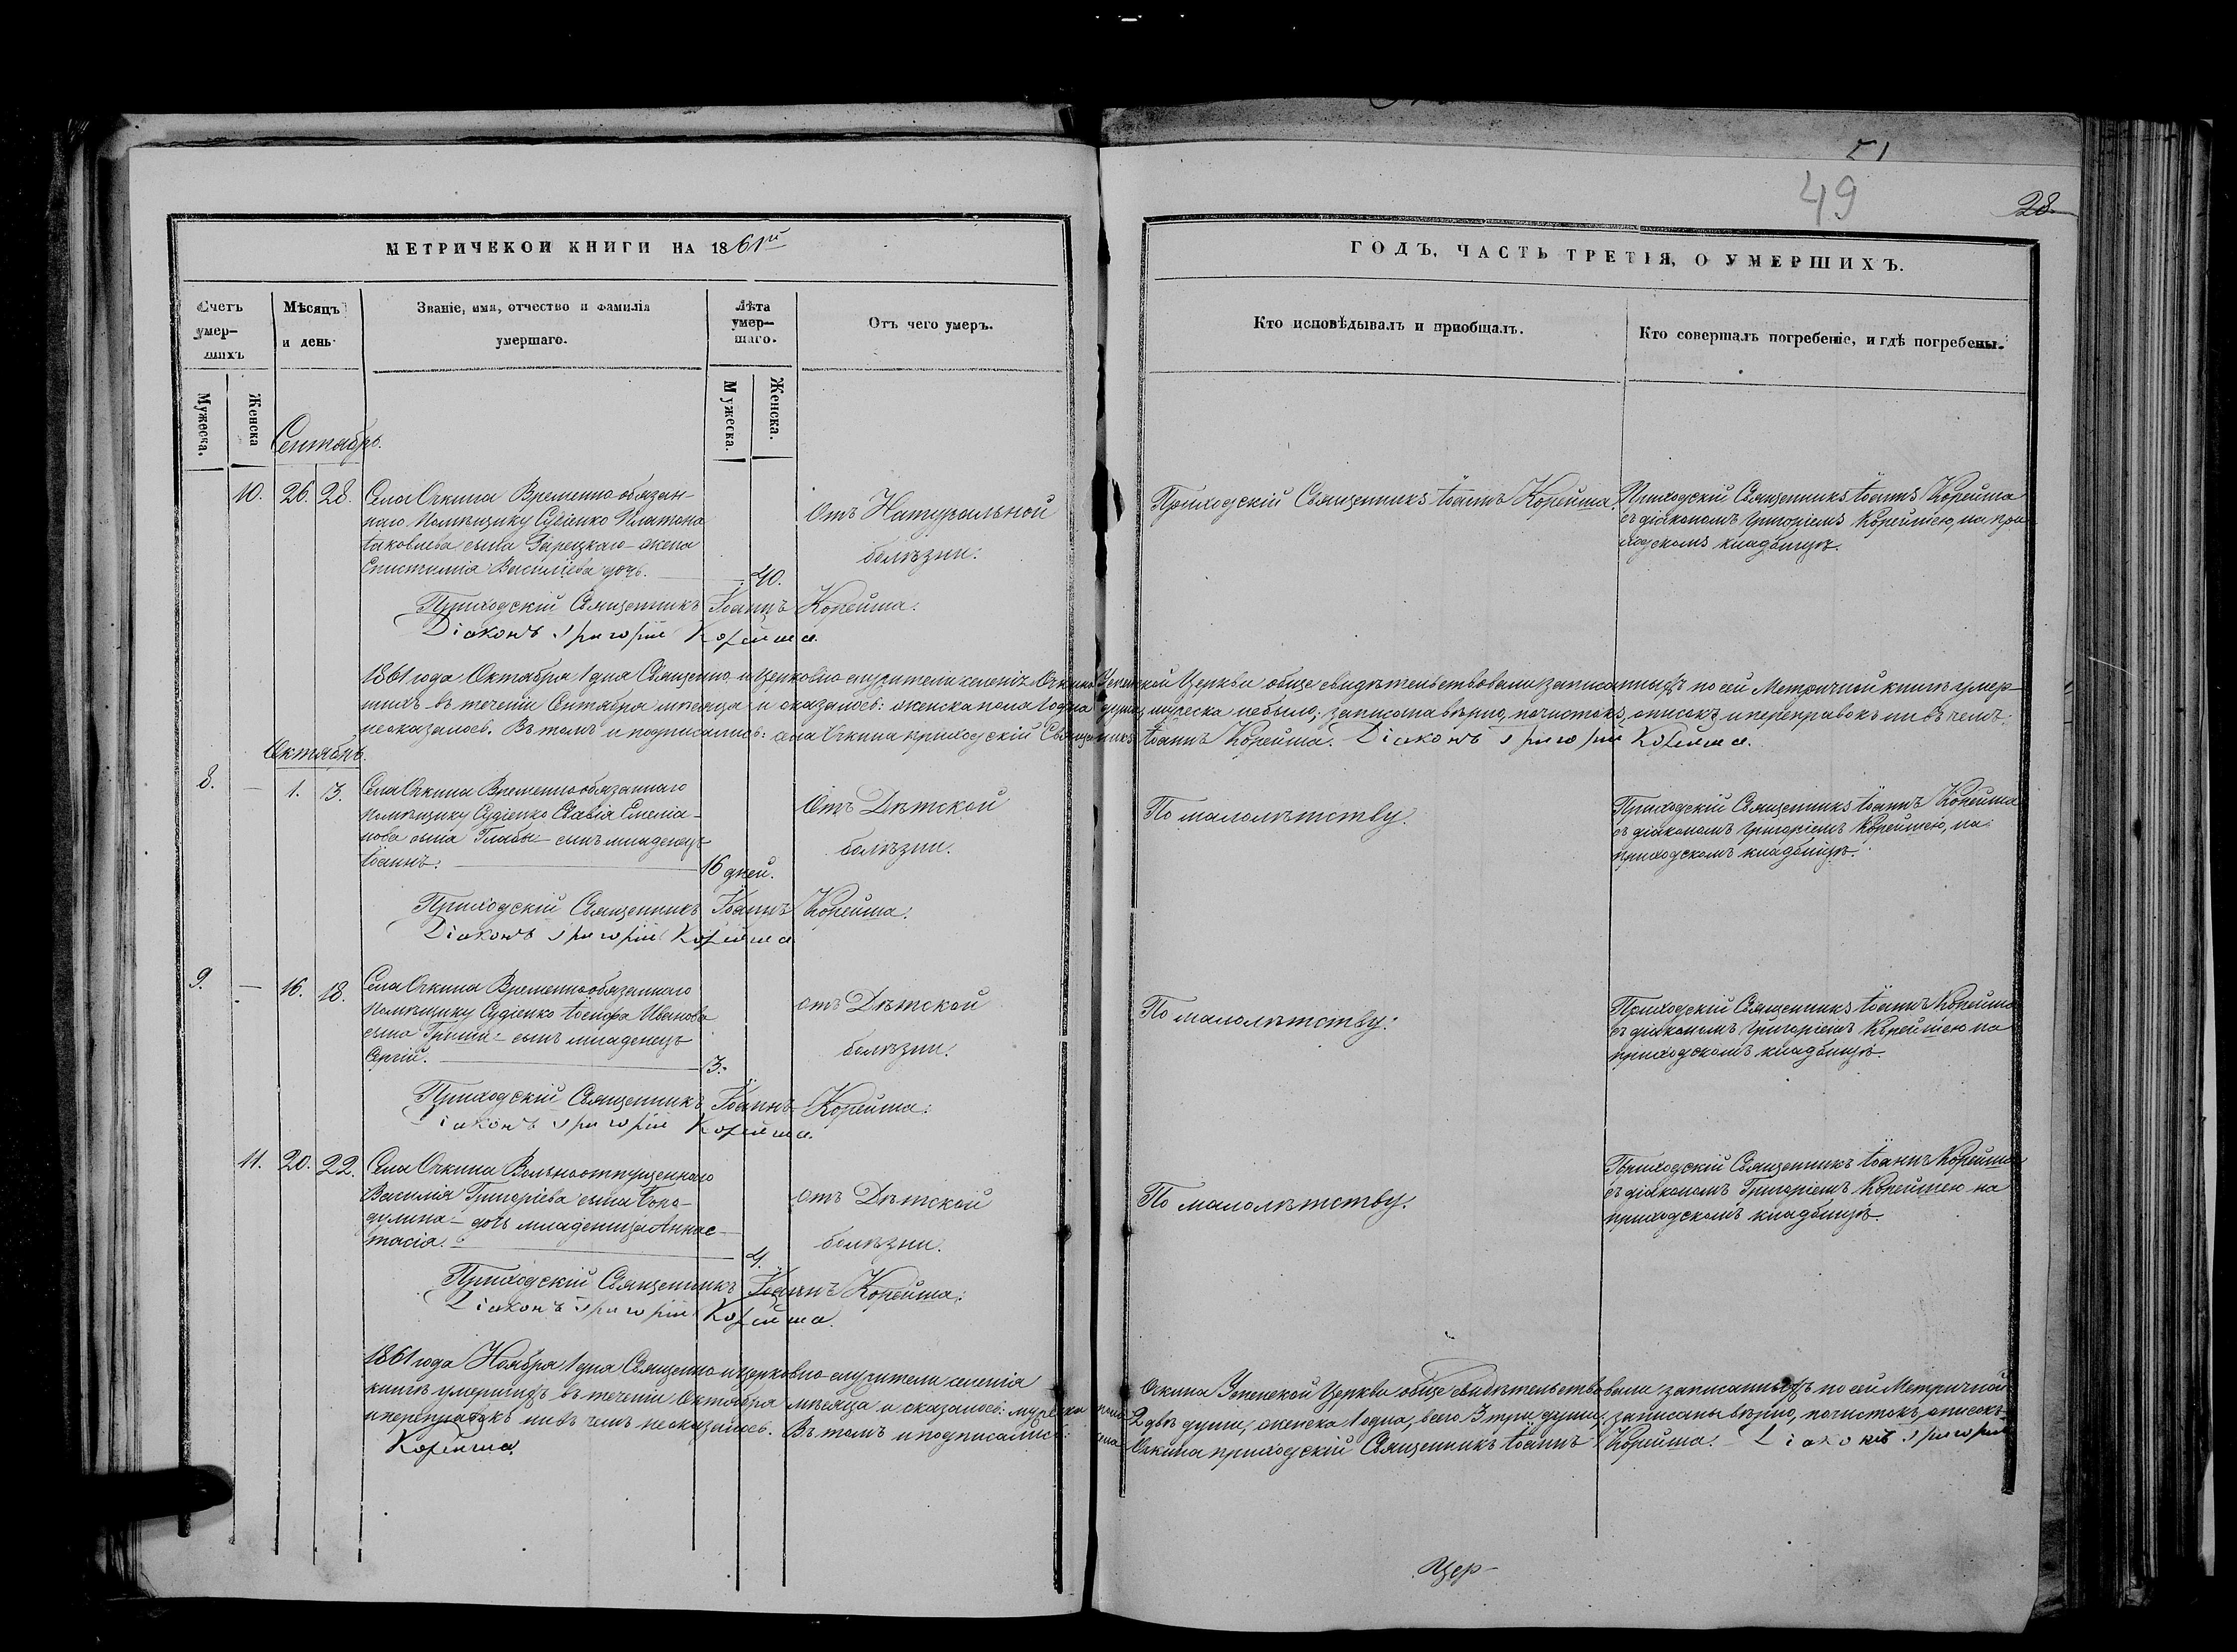 51
49
28.
МЕТРИЧЕКОИ КНИГИ НА 1861й
ГОДЪ, ЧАСТЬ ТРЕТІЯ, О УМЕРШИХЪ.
Счетъ умер-шихъ
Мѣсяцъ и день
Званіе, имя, отчество и фамилія умершаго.
Лѣта умер-шаго.
Отъ чего умеръ.
Кто исповѣдывалъ и приобщалъ.
Кто совершалъ погребеніе, и гдѣ погребены.
Мужеска.
Женска
Мужеска.
Женска.
Сентябрь.
10. 26. 28. Села Очкина Временно обязан-
наго помѣщику Судіенко Платона
Іаковлева сына Зарецкаго - жена
Епистимія Василіева дочь. 40.
Отъ Натуральной
болѣзни.
Приходскій Священникъ Іоаннъ Корейша.
Приходскій Священникъ Іоаннъ Корейша
съ діакономъ Григоріемъ Корейшею, на при-
ходскомъ кладбищѣ.
Приходскій Священникъ Іоаннъ Корейша.
Діаконъ Григорій Корейша.
1861 года Октября 1 дня Священно и церковно служители селенія Очкина Успенской Церкви обще свидѣтельствовали записанныхъ по сей Метричной книгѣ умер-
шихъ въ теченіи Сентября мѣсяца и оказалось: женска пола 1 одна душа, мужеска небыло; записана вѣрно, почистокъ, описокъ и переправокъ ни въ чемъ
неоказалось. Въ томъ и подписались: села Очкина приходскій Священникъ Іоаннъ Корейша. Діаконъ Григорій Корейша.
Октябрь.
8. — 1. 3. Села Очкина Временнообязаннаго
помѣщику Судіенко Савія Емеліа-
нова сына Глабы - сынъ младенецъ
Іоаннъ. 16 дней.
Отъ Дѣтской
болѣзни.
По малолѣтству.
Приходскій Священникъ Іоаннъ Корейша
съ діакономъ Григоріемъ Корейшею, на
приходскомъ кладбищѣ.
Приходскій Священникъ Іоаннъ Корейша.
Діаконъ Григорій Корейша
9. — 16. 18. Села Очкина Временнообязаннаго
помѣщику Судіенко Іосифа Иванова
сына Гриши - сынъ младенецъ
Сергій. 3.
отъ Дѣтской
болѣзни.
По малолѣтству.
Приходскій Священникъ Іоаннъ Корейша
съ діакономъ Григоріемъ Корейшею на
приходскомъ кладбищѣ.
Приходскій Священникъ Іоаннъ Корейша.
Діаконъ Григорій Корейша.
11. 20. 22. Села Очкина Вольноотпущеннаго
Василія Григоріева сына
дочь младеница Анас-
тасія. 4.
отъ Дѣтской
болѣзни.
По малолѣтству.
Приходскій Священникъ Іоаннъ Корейша
съ діакономъ Григоріемъ Корейшею на
приходскомъ кладбищѣ.
Приходскій Священникъ Іоаннъ Корейша.
Діаконъ Григорій Корейша.
1861 года Ноября 1 дня Священно и церковно-служители селенія Очкина Успенской Церкви обще свидѣтельствовали записанныхъ по сей Метричной
книгѣ умершихъ въ теченіи Октября мѣсяца и оказалось: мужеска пола 2 двѣ души, женска 1 одна, всего 3 три души; записаны вѣрно, почистокъ, описокъ
и переправокъ ни въ чемъ неоказалось. Въ томъ и подписались: села Очкина приходскій Священникъ Іоаннъ Корейша. Діаконъ Григорій
Корейша.
Цер-